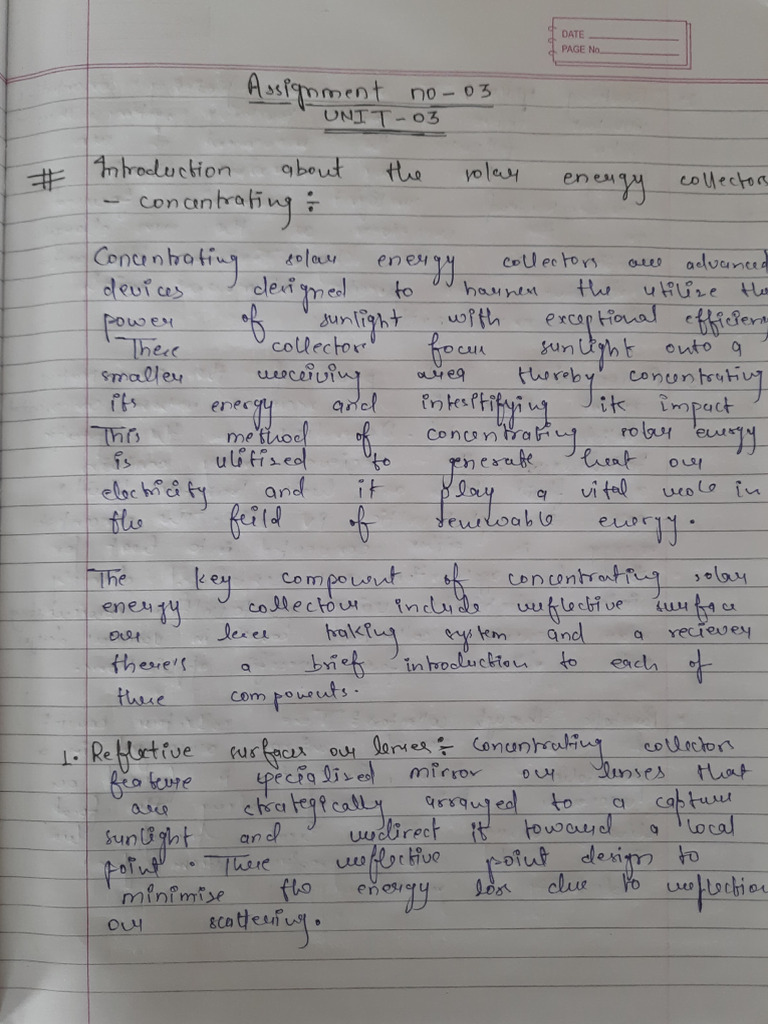 DATE
PAGE No.
Assignment no-03
UNIT-03
# Introduction about the solar energy collectors
- concentrating ÷
Concentrating solar energy collectors are advanced
devices designed to harness the utilize the
power of sunlight with exceptional efficiency
These collectors focus sunlight onto a
smaller receiving area thereby concentrating
its energy and intesitifying its impact
This method of concentrating solar energy
is ulitized to generate heat or
electricity and it play a vital role in
the feild of renewable energy.
The key component of concentrating solar
energy collectors include reflective surface
or lense traking system and a reciever
there's a brief introduction to each of
these components.
1. Reflective surfaces or lenses ÷ Concentrating collectors
feature specialized mirror or lenses that
are strategically arranged to a capture
sunlight and redirect it toward a local
point. These reflective point design to
minimise the energy loss due to reflection
or scattering.